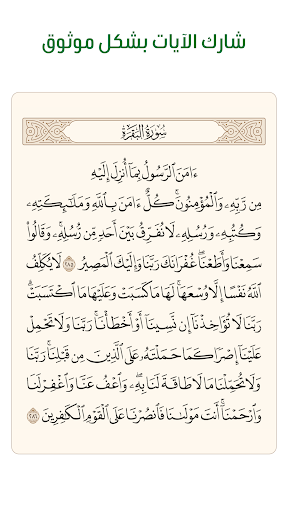 شارك الآيات بشكل موثوق
سُورَةُ البَقَرَةِ
ءَامَنَ ٱلرَّسُولُ بِمَآ أُنزِلَ إِلَيْهِ
مِن رَّبِّهِۦ وَٱلْمُؤْمِنُونَۚ كُلٌّ ءَامَنَ بِٱللَّهِ وَمَلَـٰٓئِكَتِهِۦ
وَكُتُبِهِۦ وَرُسُلِهِۦ لَا نُفَرِّقُ بَيْنَ أَحَدٍ مِّن رُّسُلِهِۦۚ وَقَالُوا۟
سَمِعْنَا وَأَطَعْنَاۖ غُفْرَانَكَ رَبَّنَا وَإِلَيْكَ ٱلْمَصِيرُ ٢٨٥ لَا يُكَلِّفُ
ٱللَّهُ نَفْسًا إِلَّا وُسْعَهَاۚ لَهَا مَا كَسَبَتْ وَعَلَيْهَا مَا ٱكْتَسَبَتْۗ
رَبَّنَا لَا تُؤَاخِذْنَآ إِن نَّسِينَآ أَوْ أَخْطَأْنَاۚ رَبَّنَا وَلَا تَحْمِلْ
عَلَيْنَآ إِصْرًا كَمَا حَمَلْتَهُۥ عَلَى ٱلَّذِينَ مِن قَبْلِنَاۚ رَبَّنَا
وَلَا تُحَمِّلْنَا مَا لَا طَاقَةَ لَنَا بِهِۦۖ وَٱعْفُ عَنَّا وَٱغْفِرْ لَنَا
وَٱرْحَمْنَآۚ أَنتَ مَوْلَىٰنَا فَٱنصُرْنَا عَلَى ٱلْقَوْمِ ٱلْكَـٰفِرِينَ ٢٨٦